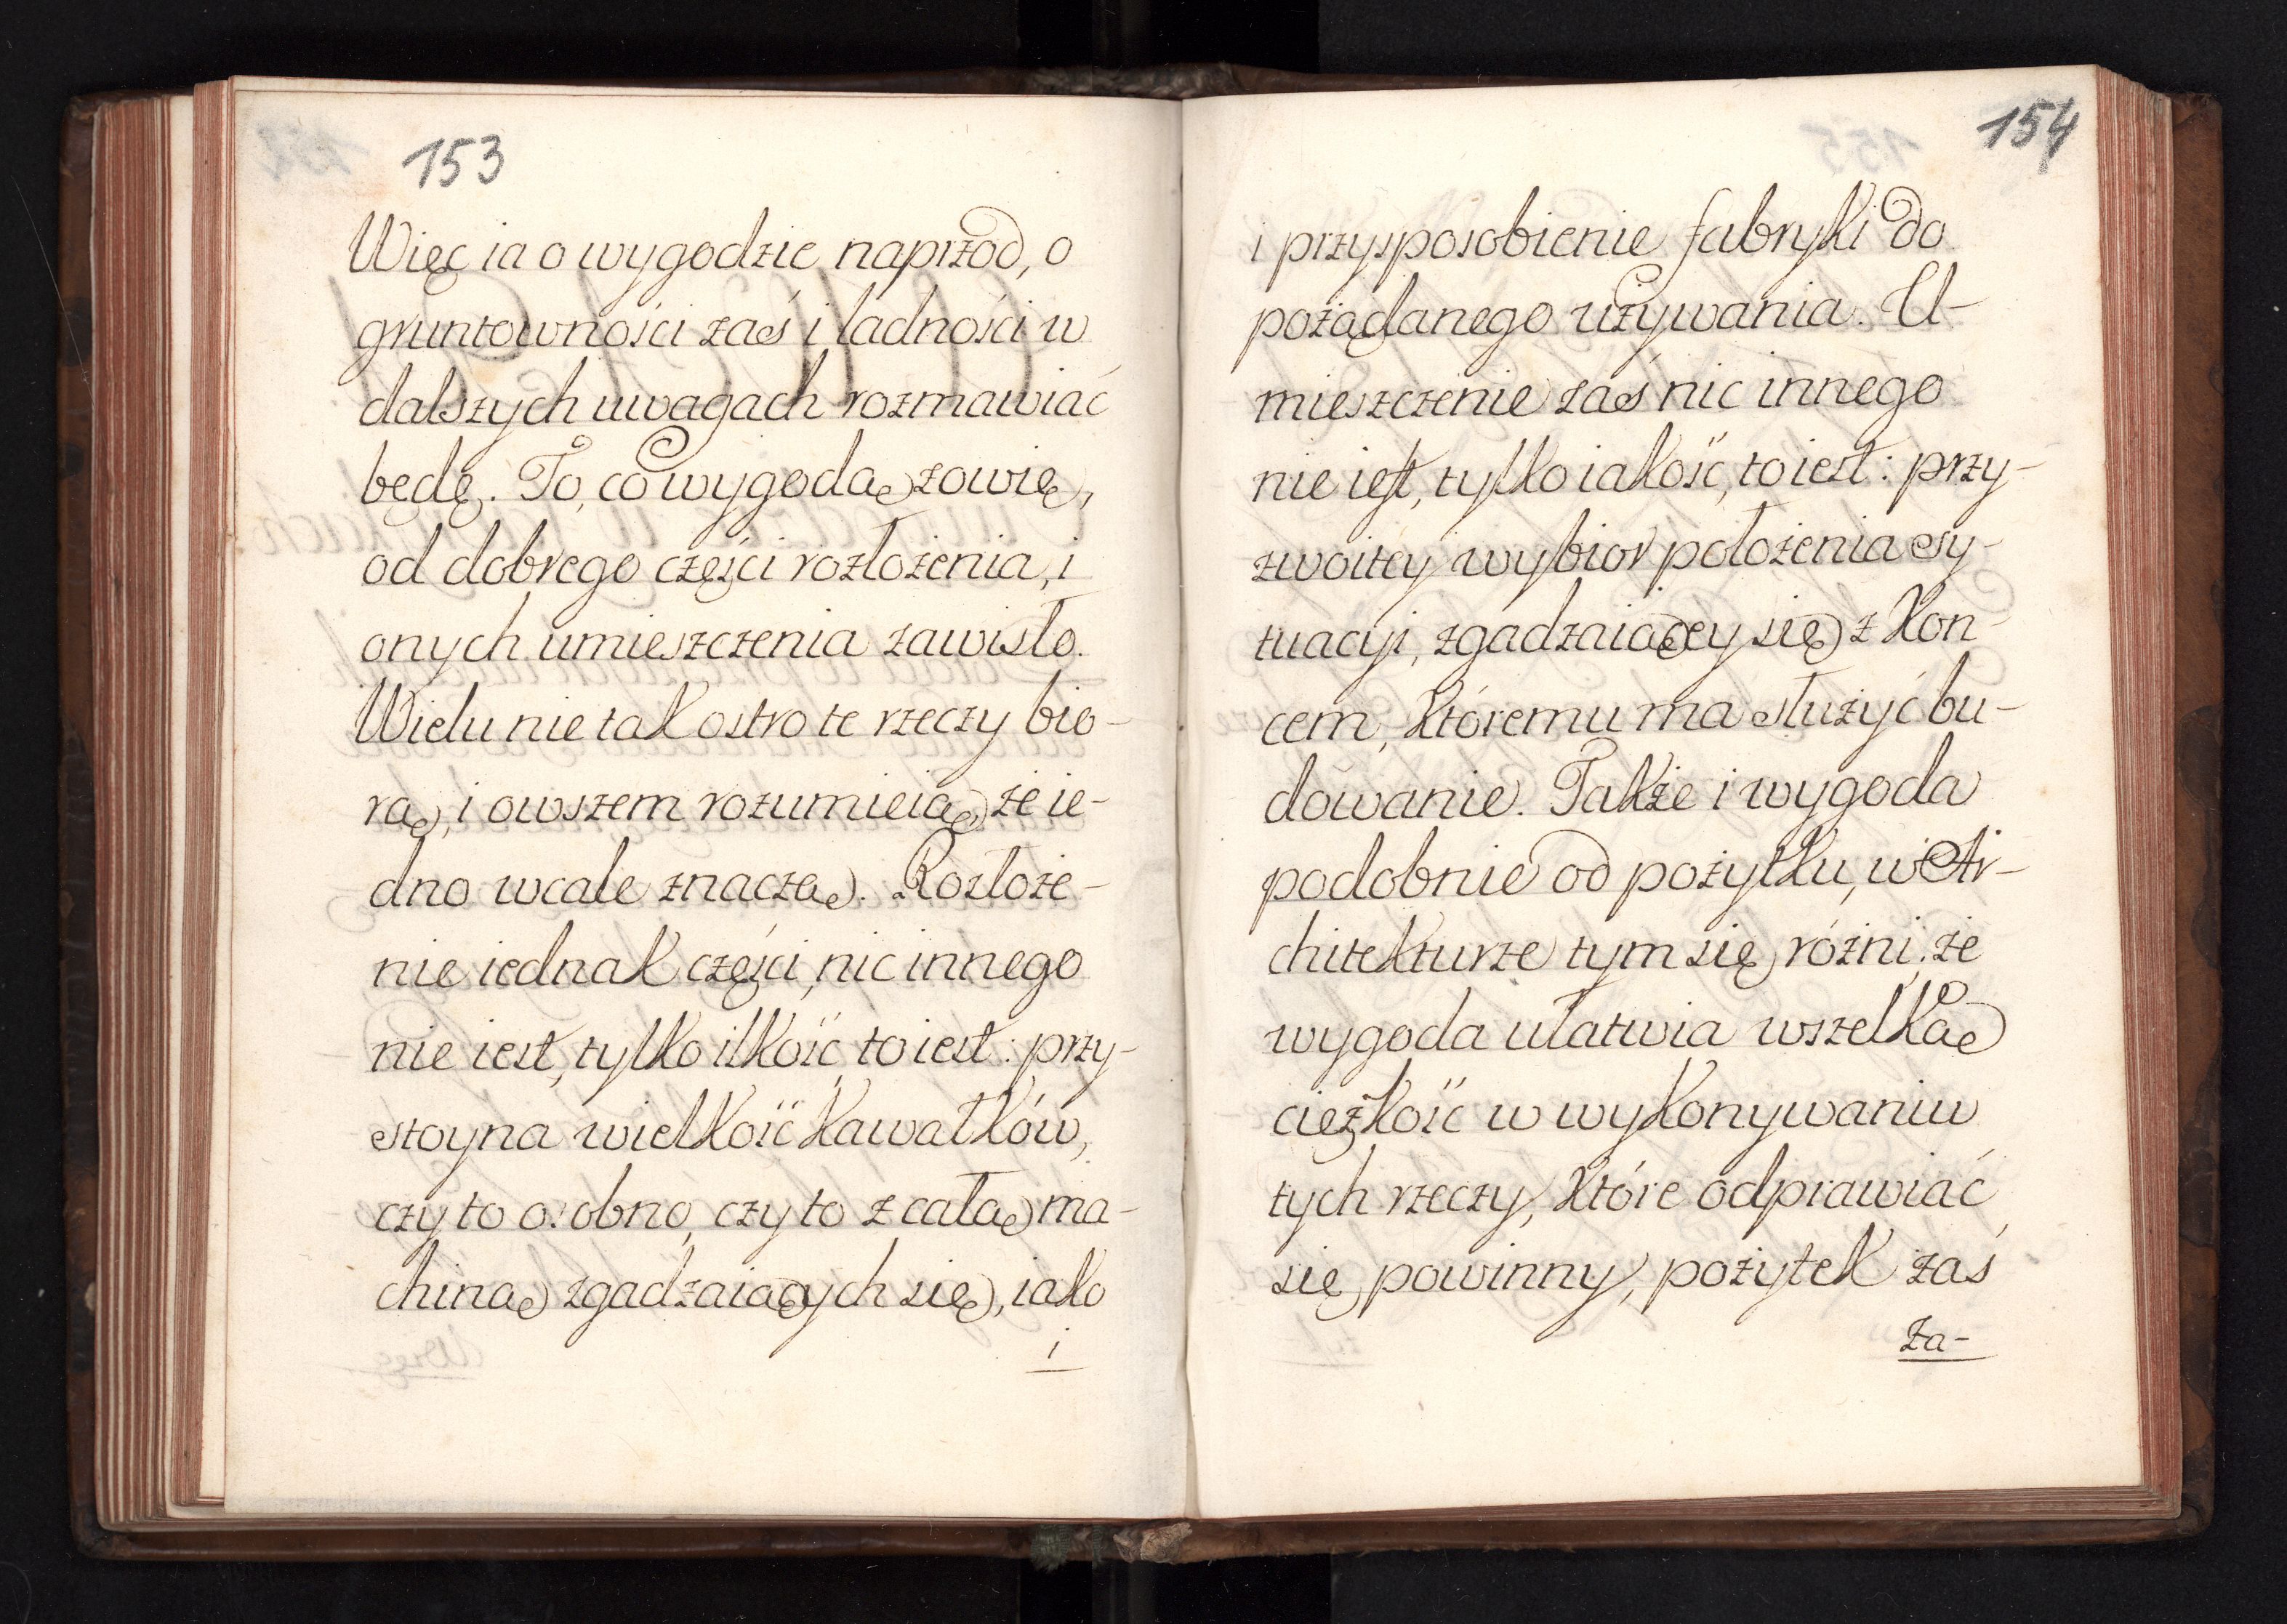 153
Więc ia o wygodzie naprzod, o
gruntowności zaś i ładności w
dalszych uwagach rozmawiać
będę. To, co wygodą zowię,
od dobrego części rozłożenia, i
onych umieszczenia zawisło.
Wielu nie tak ostro te rzeczy bio-
rą, i owszem rozumieią, że ie-
dno wcale znaczą. Rozłoże-
nie iednak części, nic innego
nie iest, tylko ilkość, to iest: przy-
stoyna wielkość kawałków,
czy to osobno, czy to z całą ma-
chiną zgadzaiących się, iako
i
154
i przysposobienie fabryki do
pożądanego używania. U-
mieszczenie zaś nic innego
nie iest, tylko iakość, to iest: przy-
zwoitey wybior położenia sy-
tuacyi, zgadzaiącey się z kon-
cem, któremu ma służyć bu-
dowanie. Także i wygoda
podobnie od pożytku, w Ar-
chitekturze tym się różni, że
wygoda ułatwia wszelką
ciężkość w wykonywaniu
tych rzeczy, które odprawiać
się powinny, pożytek zaś
za-